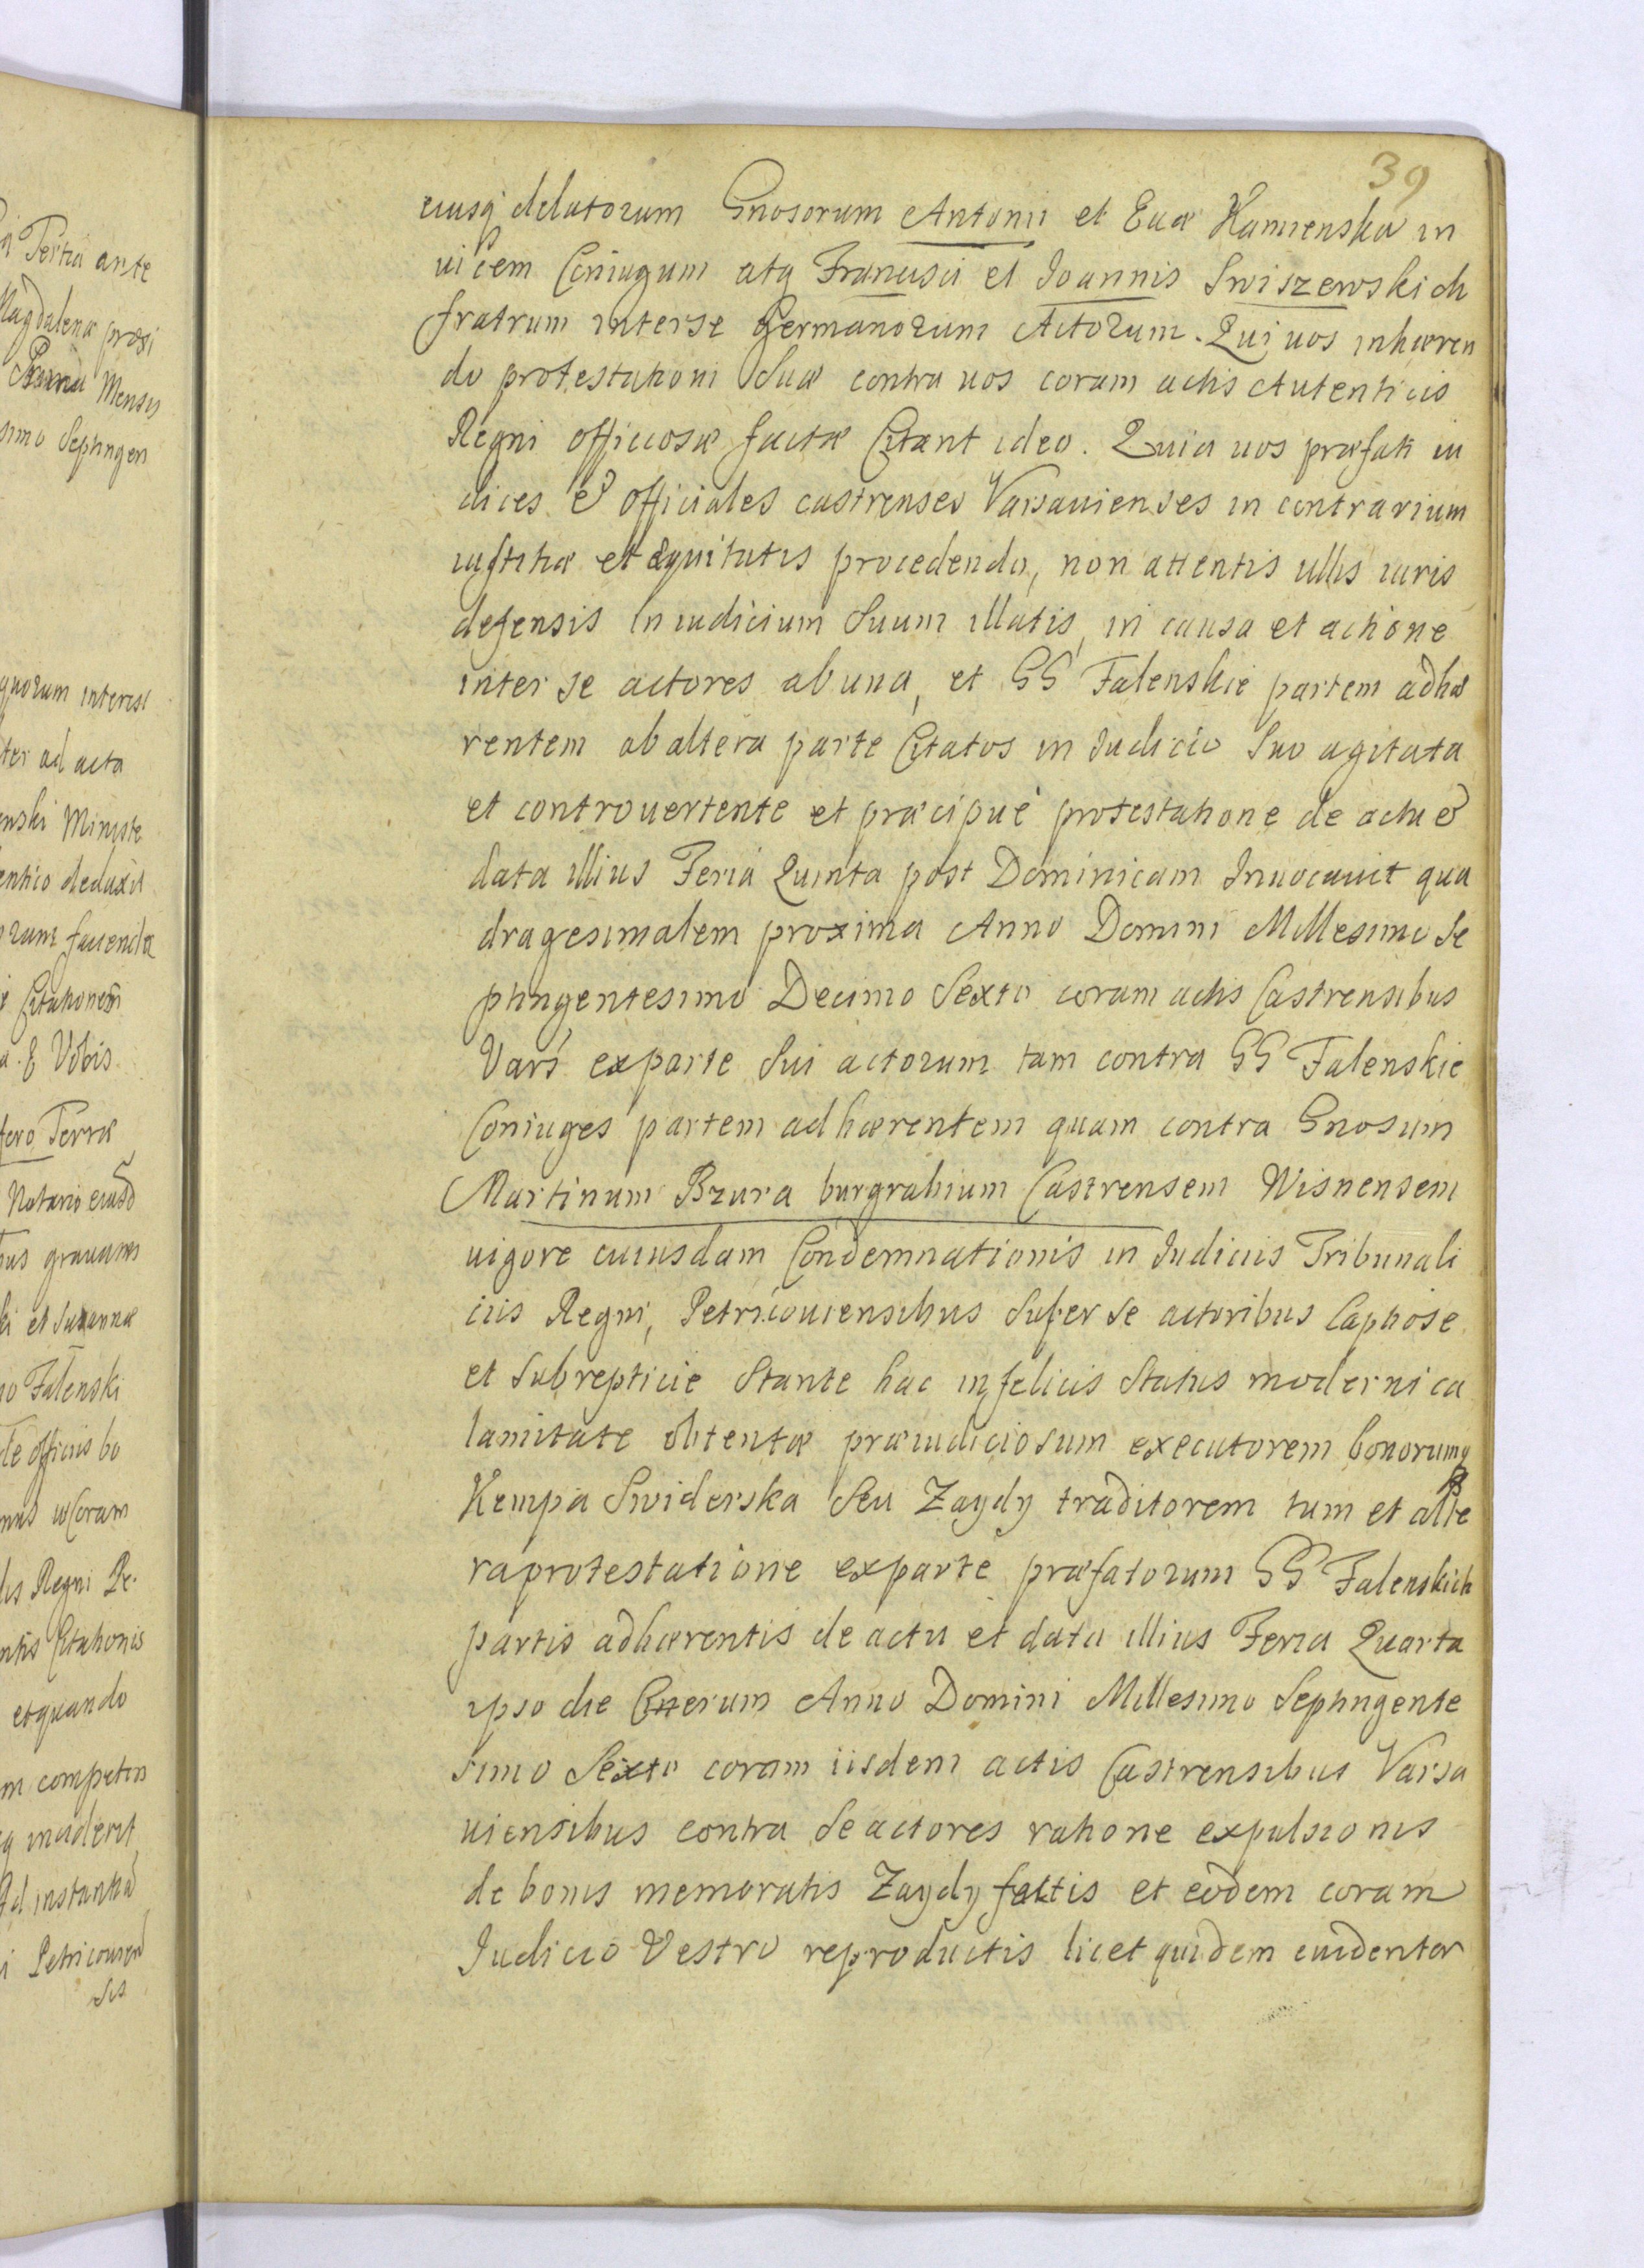 39
eiusq delatorum Gnosorum Antonii et Euæ Kamienska in
uicem Coniugum atq Francisci et Joannis Swiszewskich
fratrum interse Germanorum Actorum. Qui uos inhæren
do protestationi Suæ contra uos coram actis Autenticis
Regni officiosæ factæ Citant ideo. Quia uos præfati iu
dices & officiales castrenses Varsauienses in contrarium
iustitiæ et Equitatis procedendo, non attentis ullis iuris
defensis in iudicium Suum illatis, in causa et actione
inter se actores ab una, et GG Falenskie partem adhæ
rentem ab altera parte Citatos in Judicio Suo agitata
et controuertente et præcipuè protestatione de actu &
data illius Feria Quinta post Dominicam Inuocauit qua
dragesimalem proxima Anno Domini Millesimo Se
ptingentesimo Decimo Sexto coram actis Castrensibus
Vars exparte Sui actorum tam contra GG Falenskie
Coniuges partem adhærentem quam contra Gnosum
Martinum Bzura burgrabium Castrensem Wisnensem
uigore cuiusdam Condemnationis in Judiciis Tribunali
ciis Regni, Petricouiensibus Super se actoribus Captiose
et Subrepticie Stante hac infelicis Status moderni ca
lamitate obtentæ præiudiciosum executorem bonorumq
Kempa Swiderska Seu Zaydy traditorem tum et alte
ra protestatione exparte præfatorum GG Falenskich
partis adhærentis de actu et data illius Feria Quarta
ipso die Cinerum Anno Domini Millesimo Septingente
simo Sexto coram iisdem actis Castrensibus Varsa
uiensibus contra Se actores ratione expulsionis
de bonis memoratis Zaydy factis et eodem coram
Judicio Vestro reproductis licet quidem euidenter
a Tertia ante
Magdalenæ proxi
Mensis
simo Septingen
quorum interest
ter ad acta
enski Ministe
entico deduxit
rum facienda
Citationem
a. E Vobis
fero Terræ
Notario eiusd
ki et Suzannæ
no Falenski
te officiis bo
lis Regni Pe.
ntis Citationis
et quando
m competen
q inciderit
Ad instantia
i Petricouien
sis